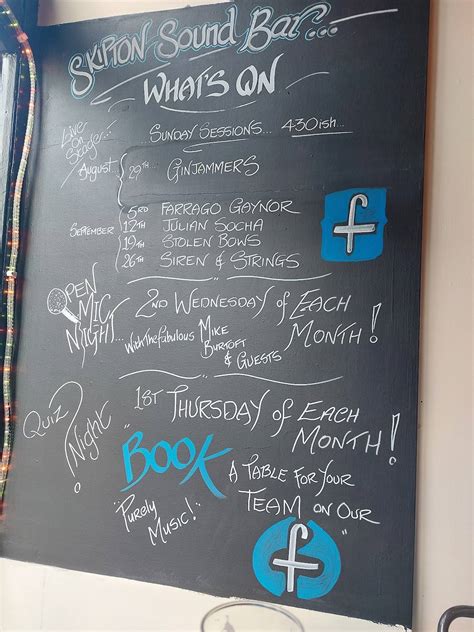 SKIPTON SOUND BAR...
WHAT'S ON
Live On Stage
SUNDAY SESSIONS... 430ish...
August 29TH GINJAMMERS
SEPTEMBER 5RD FARRAGO GAYNOR
12TH JULIAN SOCHA
19TH STOLEN BOWS
26TH SIREN & STRINGS
OPEN MIC NIGHT...
2ND WEDNESDAY of EACH MONTH!
With The fabulous MIKE BURTOFT & GUESTS
Quiz Night
1ST THURSDAY of EACH MONTH!
BOOK A TABLE FOR YOUR TEAM ON OUR
f
"Purely Music!"
f